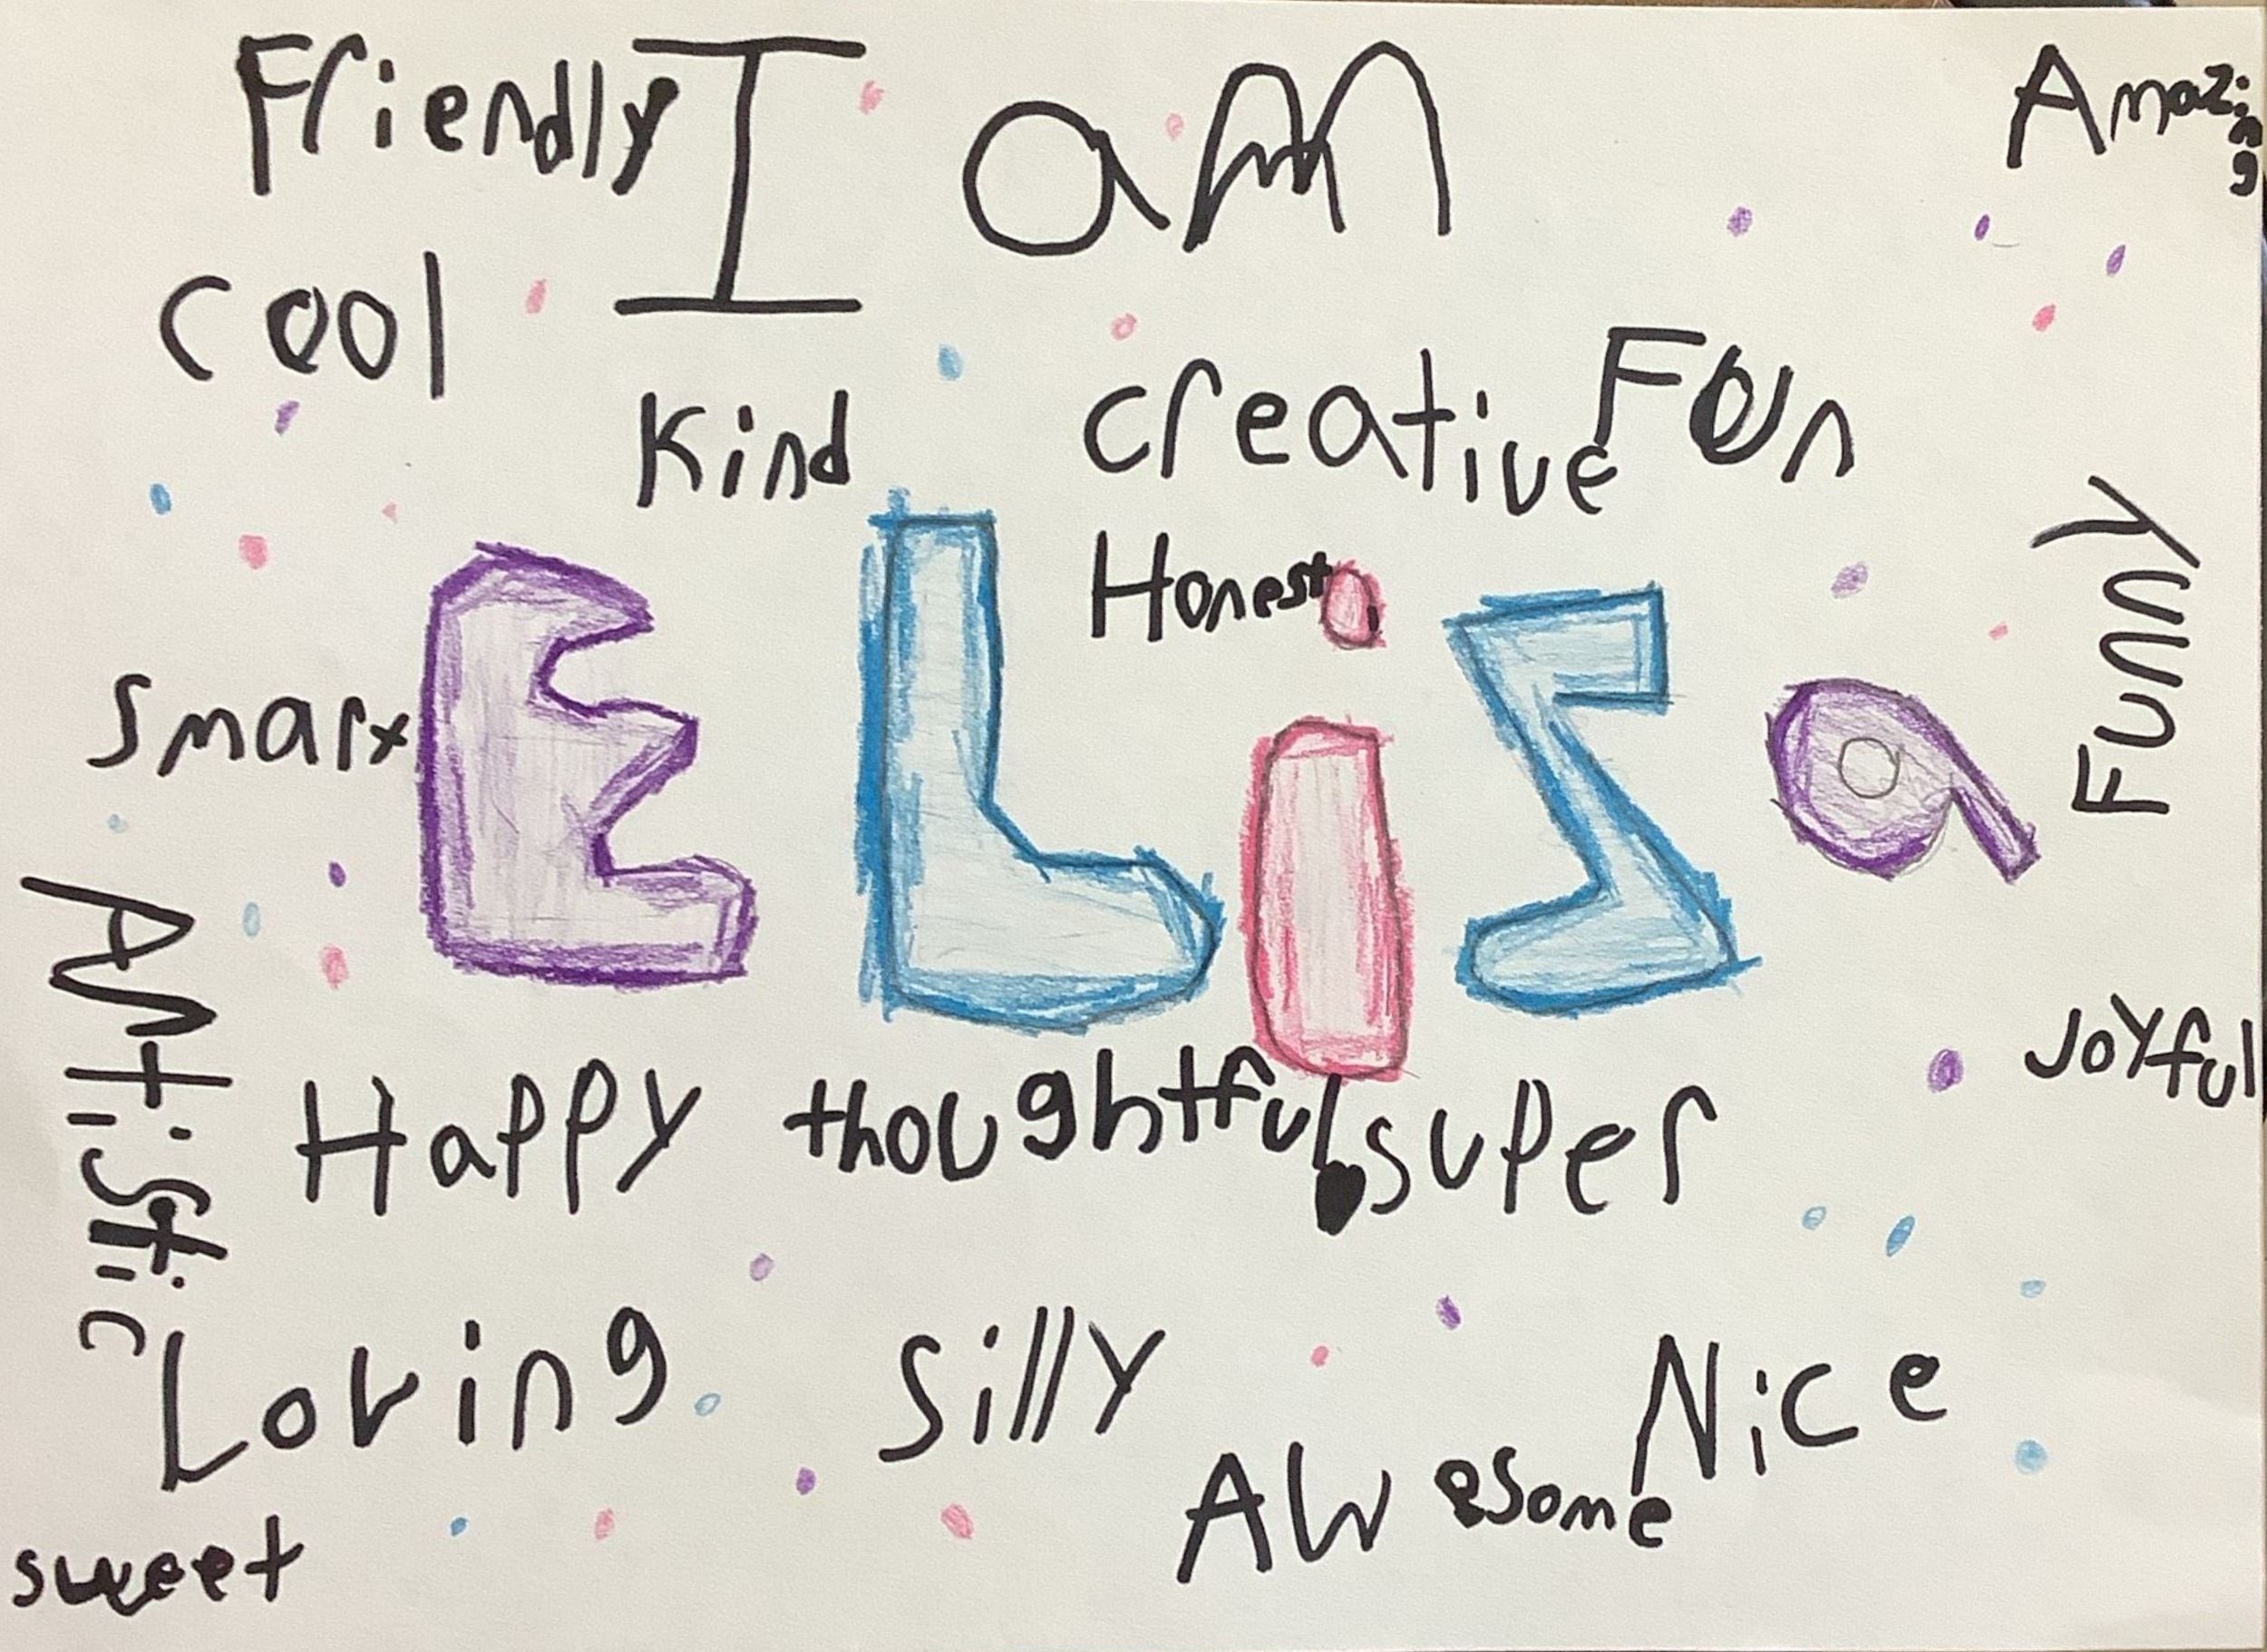 Friendly
I am
Amazing
cool
Kind
creative
Fun
Honest
Funny
ELiza
smart
Artistic
Happy
thoughtful
super
Joyful
Loving
Silly
Nice
AWesome
sweet